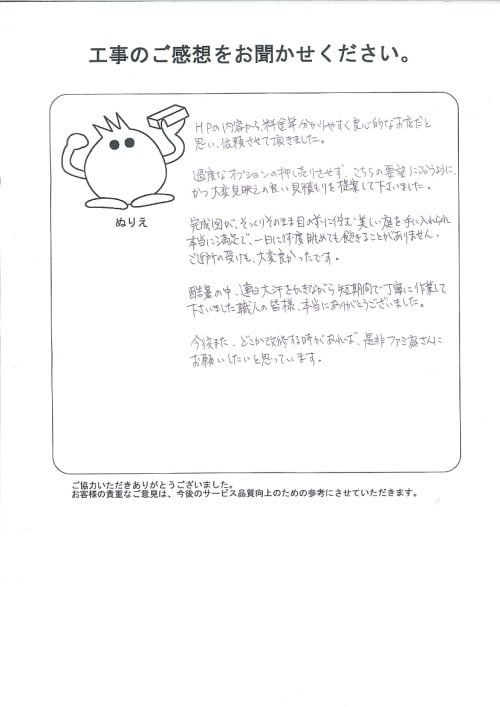 工事のご感想をお聞かせください。
ぬりえ
HPの内容から、料金等分かりやすく良心的なお店だと
思い、依頼させて頂きました。
過度なオプションの押し売りさせず、こちらの要望に沿うように、
かつ大変見映えの良い見積もりを提案して下さいました。
完成図が、そっくりそのまま目の前に佇む美しい庭を手に入れられ
本当に満足で、一日に何度眺めても飽きることがありません。
ご近所の受けも、大変良かったです。
酷暑の中、連日大汗をかきながら短期間で丁寧に作業して
下さいました職人の皆様、本当にありがとうございました。
今後また、どこか改修する時があれば、是非ファミ庭さんに
お願いしたいと思っています。
ご協力いただきありがとうございました。
お客様の貴重なご意見は、今後のサービス品質向上のための参考にさせていただきます。